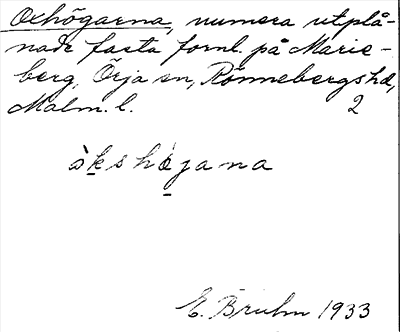 Oxhögarna, numera utplå-
nade fasta fornl. på Marie-
berg, Örja sn, Rönnebergs hd,
Malm. l. 2
òkshö́jana
E. Bruhn 1933